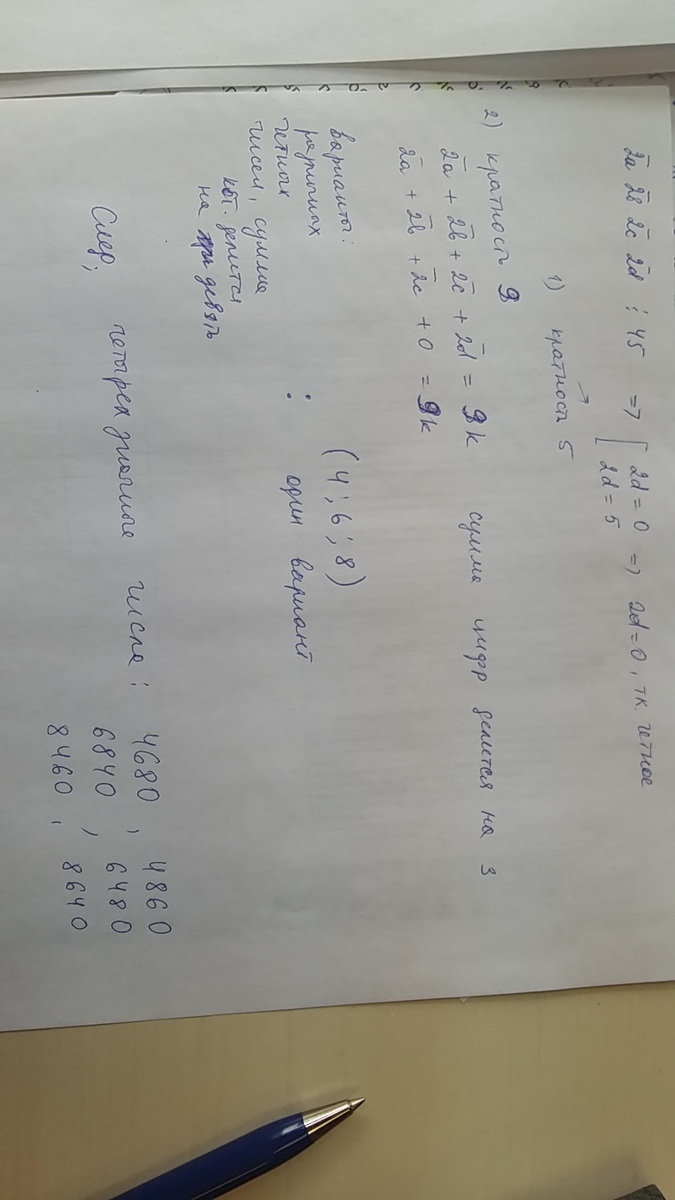 2a 2b 2c 2d ⋮ 45 => [ 2d = 0 => 2d = 0, т.к. четное
2d = 5
1) кратность 5
2) кратность 9
2a + 2b + 2c + 2d = 9k сумма цифр делится на 3
2a + 2b + 2c + 0 = 9k
варианты:
различных
четных
чисел, сумма
кот. делится
на девять
(4; 6; 8)
: один вариант
След; четырех значные числа: 4680, 4860
6840, 6480
8460, 8640